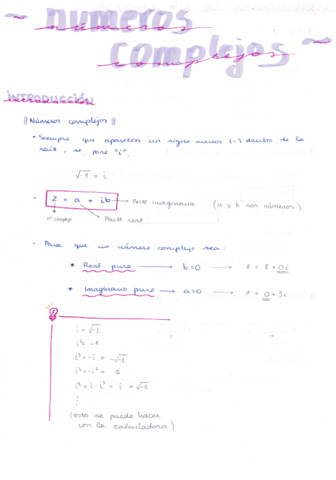 ~ números
complejos ~
INTRODUCCIÓN
|| Números complejos ||
• Siempre que aparezca un signo menos (-) dentro de la
raíz, se pone "i".
√-1 = i
- z = a + ib → Parte imaginaria (a y b son números)
nº complejo Parte real
- Para que un número complejo sea:
* Real puro → b=0 z = 8 + 0i
* Imaginario puro → a=0 z = 0 + 3i
i = √-1
i² = -1
i³ = -i = -√-1
(esto se puede hacer
con la calculadora)